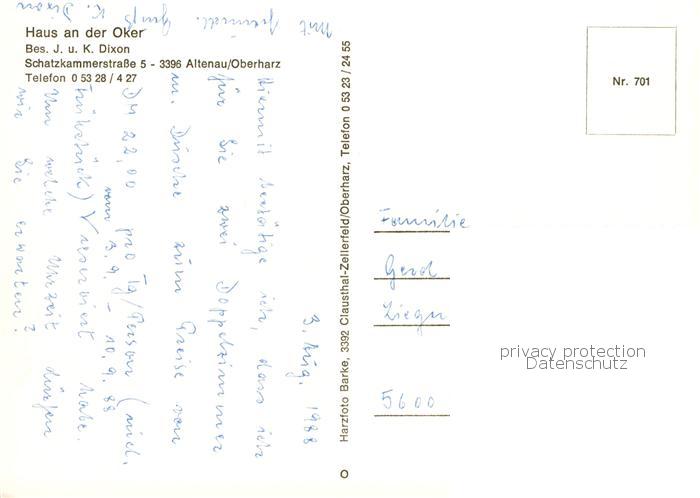 Haus an der Oker
Bes. J. u. K. Dixon
Schatzkammerstraße 5 - 3396 Altenau/Oberharz
Telefon 0 53 28 / 4 27
3. Aug. 1988
Hiermit bestätige ich, dass ich
für Sie zwei Doppelzimmer
m. Dusche zum Preise von
DM 22,00 pro Tg/Person (incl.
Frühstück) reserviert habe.
vom 3.9. - 10.9.88
Um welche Uhrzeit dürfen
wir Sie erwarten?
Mit freundl. Gruß
K. Dixon
Harzfoto Barke, 3392 Clausthal-Zellerfeld/Oberharz, Telefon 0 53 23 / 24 55
Nr. 701
Familie
Gerd
5600
privacy protection
Datenschutz